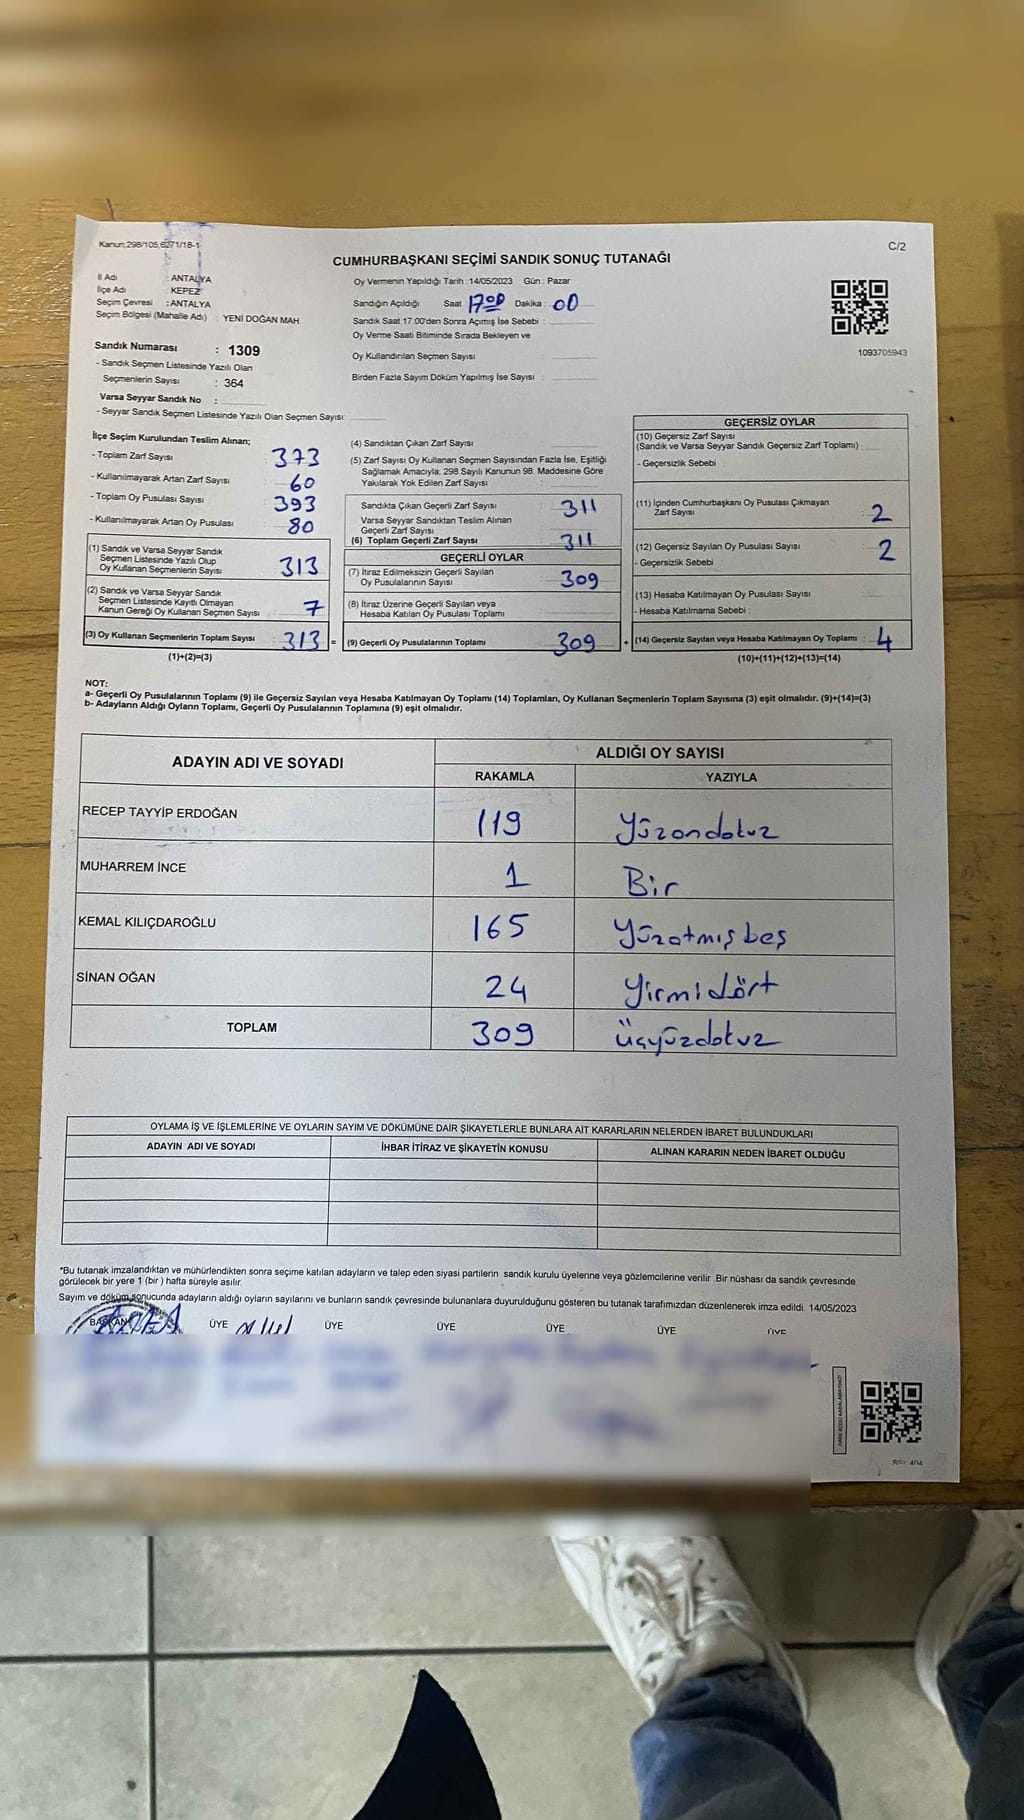 Kanun:298/105,6271/18-1
C/2
CUMHURBAŞKANI SEÇİMİ SANDIK SONUÇ TUTANAĞI
İl Adı : ANTALYA
İlçe Adı : KEPEZ
Seçim Çevresi : ANTALYA
Seçim Bölgesi (Mahalle Adı) : YENİ DOĞAN MAH.
Sandık Numarası : 1309
- Sandık Seçmen Listesinde Yazılı Olan
Seçmenlerin Sayısı : 364
Varsa Seyyar Sandık No :
- Seyyar Sandık Seçmen Listesinde Yazılı Olan Seçmen Sayısı:
Oy Vermenin Yapıldığı Tarih :14/05/2023 Gün : Pazar
Sandığın Açıldığı Saat 17:00 Dakika : 00
Sandık Saat 17:00'den Sonra Açımış İse Sebebi :
Oy Verme Saati Bitiminde Sırada Bekleyen ve
Oy Kullandırılan Seçmen Sayısı :
Birden Fazla Sayım Döküm Yapılmış İse Sayısı :
1093705943
İlçe Seçim Kurulundan Teslim Alınan;
- Toplam Zarf Sayısı : 373
- Kullanılmayarak Artan Zarf Sayısı : 60
- Toplam Oy Pusulası Sayısı : 393
- Kullanılmayarak Artan Oy Pusulası : 80
(1) Sandık ve Varsa Seyyar Sandık
Seçmen Listesinde Yazılı Olup
Oy Kullanan Seçmenlerin Sayısı : 313
(2) Sandık ve Varsa Seyyar Sandık
Seçmen Listesinde Kayıtlı Olmayan
Kanun Gereği Oy Kullanan Seçmen Sayısı : 7
(3) Oy Kullanan Seçmenlerin Toplam Sayısı : 313 =
(1)+(2)=(3)
(4) Sandıktan Çıkan Zarf Sayısı :
(5) Zarf Sayısı Oy Kullanan Seçmen Sayısından Fazla İse, Eşitliği
Sağlamak Amacıyla, 298 Sayılı Kanunun 98. Maddesine Göre
Yakılarak Yok Edilen Zarf Sayısı :
Sandıkta Çıkan Geçerli Zarf Sayısı : 311
Varsa Seyyar Sandıktan Teslim Alınan
Geçerli Zarf Sayısı :
(6) Toplam Geçerli Zarf Sayısı : 311
GEÇERLİ OYLAR
(7) İtiraz Edilmeksizin Geçerli Sayılan
Oy Pusulalarının Sayısı : 309
(8) İtiraz Üzerine Geçerli Sayılan veya
Hesaba Katılan Oy Pusulası Toplamı :
(9) Geçerli Oy Pusulalarının Toplamı : 309 +
GEÇERSİZ OYLAR
(10) Geçersiz Zarf Sayısı
(Sandık ve Varsa Seyyar Sandık Geçersiz Zarf Toplamı) :
- Geçersizlik Sebebi :
(11) İçinden Cumhurbaşkanı Oy Pusulası Çıkmayan
Zarf Sayısı : 2
(12) Geçersiz Sayılan Oy Pusulası Sayısı : 2
- Geçersizlik Sebebi :
(13) Hesaba Katılmayan Oy Pusulası Sayısı :
- Hesaba Katılmama Sebebi :
(14) Geçersiz Sayılan veya Hesaba Katılmayan Oy Toplamı : 4
(10)+(11)+(12)+(13)=(14)
NOT:
a- Geçerli Oy Pusulalarının Toplamı (9) ile Geçersiz Sayılan veya Hesaba Katılmayan Oy Toplamı (14) Toplamları, Oy Kullanan Seçmenlerin Toplam Sayısına (3) eşit olmalıdır. (9)+(14)=(3)
b- Adayların Aldığı Oyların Toplamı, Geçerli Oy Pusulalarının Toplamına (9) eşit olmalıdır.
ADAYIN ADI VE SOYADI
ALDIĞI OY SAYISI
RAKAMLA YAZIYLA
RECEP TAYYİP ERDOĞAN 119 Yüzondokuz
MUHARREM İNCE 1 Bir
KEMAL KILIÇDAROĞLU 165 Yüzatmışbeş
SİNAN OĞAN 24 Yirmidört
TOPLAM 309 Üçyüzdokuz
OYLAMA İŞ VE İŞLEMLERİNE VE OYLARIN SAYIM VE DÖKÜMÜNE DAİR ŞİKAYETLERLE BUNLARA AİT KARARLARIN NELERDEN İBARET BULUNDUKLARI
ADAYIN ADI VE SOYADI İHBAR İTİRAZ VE ŞİKAYETİN KONUSU ALINAN KARARIN NEDEN İBARET OLDUĞU
*Bu tutanak imzalandıktan ve mühürlendikten sonra seçime katılan adayların ve talep eden siyasi partilerin sandık kurulu üyelerine veya gözlemcilerine verilir .Bir nüshası da sandık çevresinde
görülecek bir yere 1 (bir ) hafta süreyle asılır.
Sayım ve döküm sonucunda adayların aldığı oyların sayılarını ve bunların sandık çevresinde bulunanlara duyurulduğunu gösteren bu tutanak tarafımızdan düzenlenerek imza edildi. 14/05/2023
BAŞKAN ÜYE ÜYE ÜYE ÜYE ÜYE ÜYE